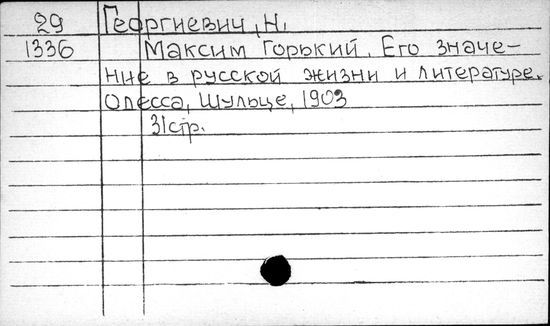 29 Георгиевич, Н.
1336 Максим Горький. Его значе-
ние в русской жизни и литературе.
Одесса, Шульце, 1903
31стр.